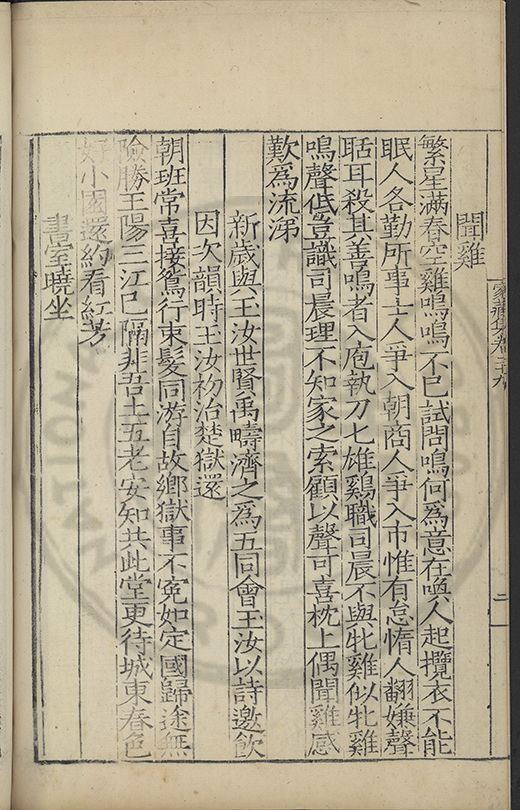 家藏集卷二十九
二
聞雞
繁星滿春空雞鳴鳴不已試問鳴何爲意在喚人起攬衣不能
眠人各勤所事士人爭入朝商人爭入市惟有怠惰人翻嫌聲
聒耳殺其善鳴者入庖執刀匕雄鷄職司晨不與牝雞似牝雞
鳴聲低豈識司晨理不知家之索顧以聲可喜枕上偶聞雞感
歎爲流涕
新歲與玉汝世賢禹疇濟之爲五同會玉汝以詩邀飲
因次韻時玉汝初治楚獄還
朝班常喜接鴛行束髮同游自故鄉獄事不冤如定國歸途無
險勝王陽三江已隔非吾土五老安知共此堂更待城東春色
好小園還約看紅芳
書室曉坐